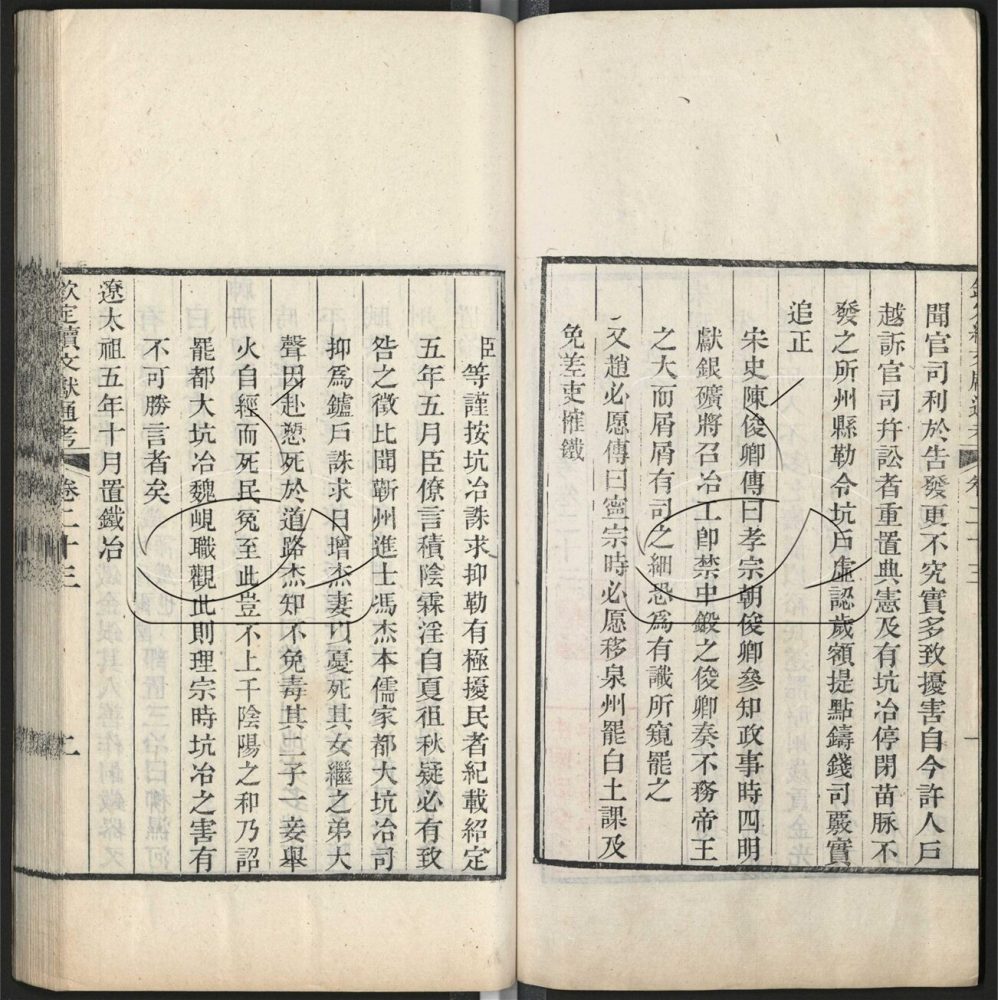 聞官司利於告發更不究實多致擾害自今許人戶
越訴官司幷訟者重置典憲及有坑冶停閉苗脉不
發之所州縣勒令坑戶虛認歲額提點鑄錢司覈實
追正
宋史陳俊卿傳曰孝宗朝俊卿參知政事時四明
獻銀礦將召冶工卽禁中鍛之俊卿奏不務帝王
之大而屑屑有司之細恐爲有識所窺罷之
又趙必愿傳曰寧宗時必愿移泉州罷白土課及
免差吏榷鐵
臣等謹按坑冶誅求抑勒有極擾民者紀載紹定
五年五月臣僚言積陰霖淫自夏徂秋疑必有致
咎之徵比聞蘄州進士馮杰本儒家都大坑冶司
抑爲鑪戶誅求日增杰妻以憂死其女繼之弟大
聲因赴愬死於道路杰知不免毒其二子一妾舉
火自經而死民冤至此豈不上干陰陽之和乃詔
罷都大坑冶魏峴職觀此則理宗時坑冶之害有
不可勝言者矣
遼太祖五年十月置鐵冶
欽定續文獻通考 卷二十三 二